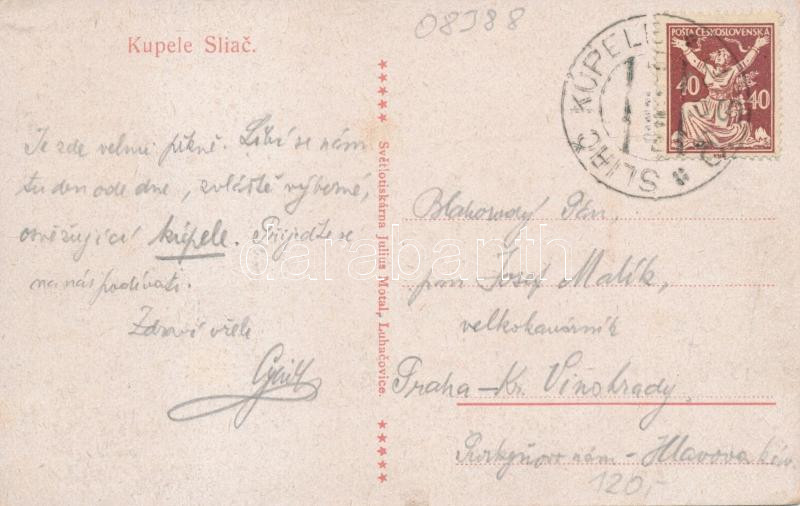 08J88
Kupele Sliač.
Je zde velmi pěkně. Líbí se nám
tu den ode dne, zvláště výborné,
osvěžující kúpele. Přijeďte se
na nás podívati.
Zdraví vřele
Cyril
Světlotiskárna Julius Motal, Luhačovice.
SLIAČ KÚPELE
POŠTA ČESKOSLOVENSKÁ
40 40
Blahorodý Pán,
pan Josef Malík,
velkokavárník
Praha - Kr. Vinohrady,
Purkyňovo nám - Hlavova káv.
120,-
darabanth